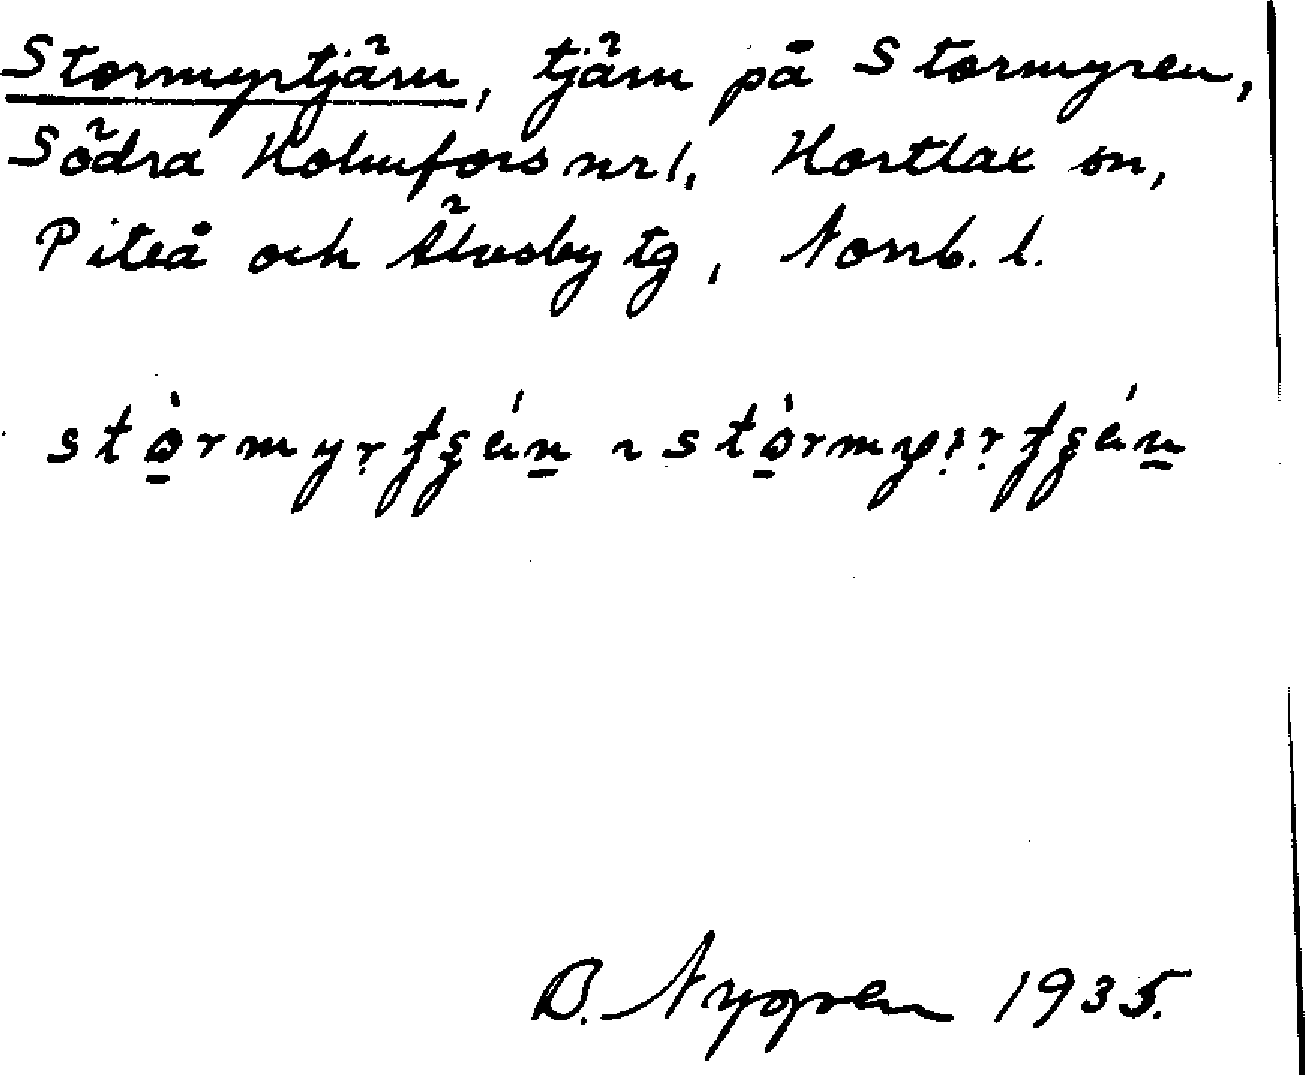 Stormyrtjärn, tjärn på Stormyren,
Södra Holmfors nr 1, Hortlax sn,
Piteå och Älvsby tg, Norrb. l.
B. Nygren 1935.